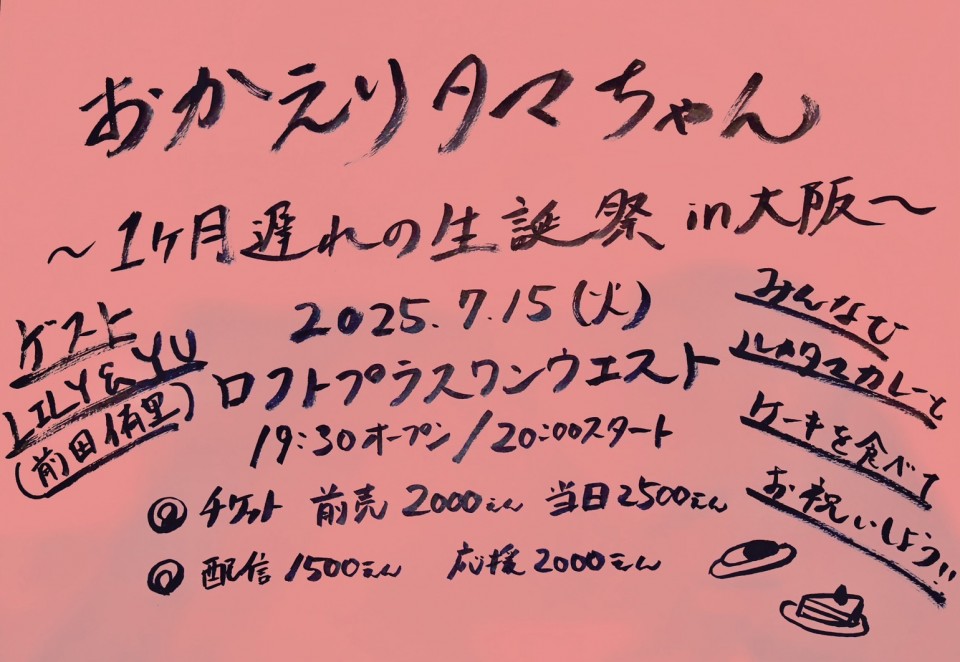 おかえりタマちゃん
〜1ヶ月遅れの生誕祭 in 大阪〜
2025.7.15(火)
ロフトプラスワンウエスト
19:30オープン/20:00スタート
◎チケット 前売2000えん 当日2500えん
◎配信1500えん 応援2000えん
ゲスト
LILY&YU
(前田侑里)
みんなで
カレーと
ケーキを食べて
お祝いしよう!!